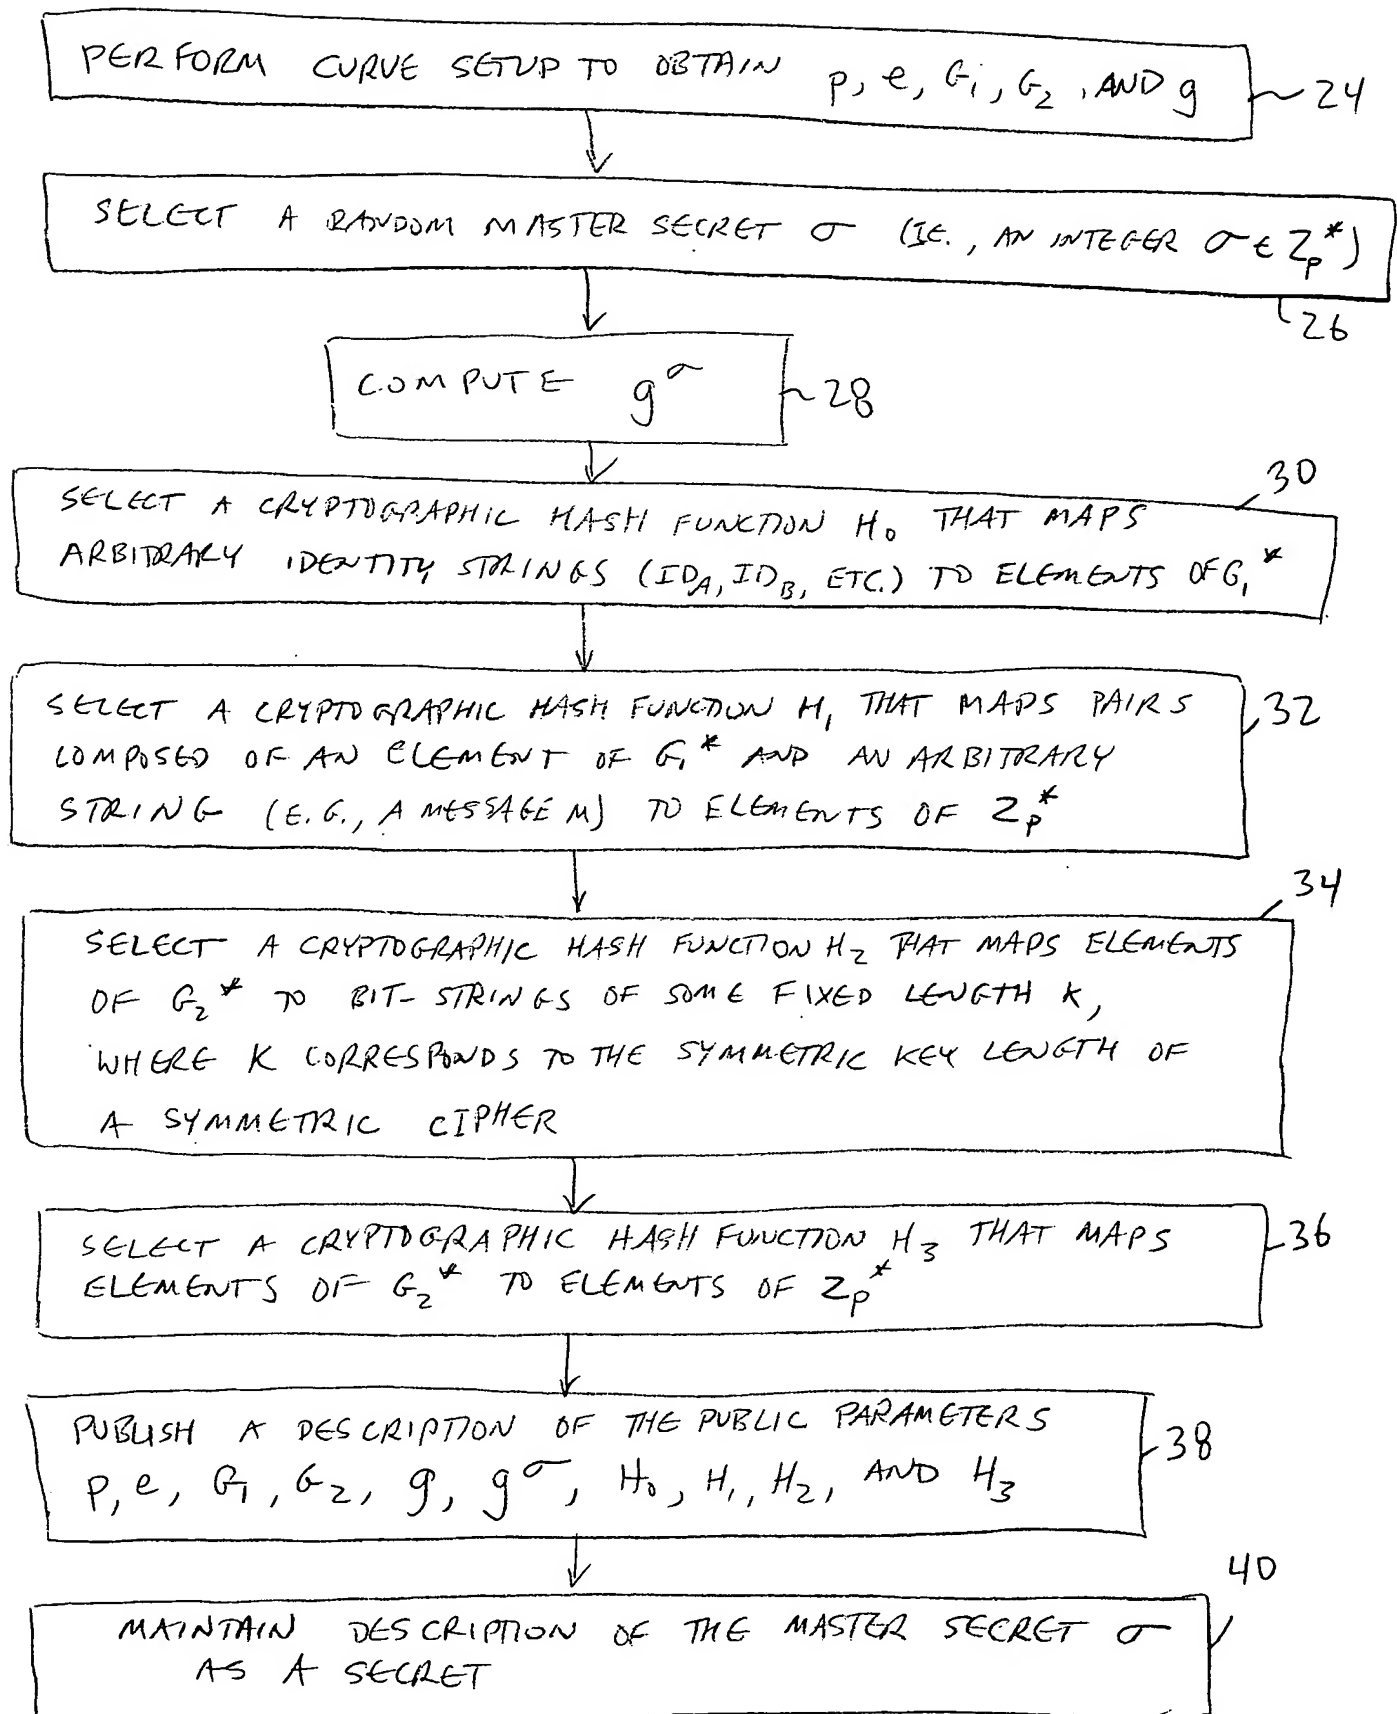 PERFORM CURVE SETUP TO OBTAIN p, e, G₁, G₂, AND g
24
SELECT A RANDOM MASTER SECRET σ (IE., AN INTEGER σ ∈ Zₚ*)
26
COMPUTE g^σ
28
30
SELECT A CRYPTOGRAPHIC HASH FUNCTION H₀ THAT MAPS
ARBITRARY IDENTITY STRINGS (ID_A, ID_B, ETC.) TO ELEMENTS OF G₁*
SELECT A CRYPTOGRAPHIC HASH FUNCTION H₁ THAT MAPS PAIRS
32
COMPOSED OF AN ELEMENT OF G₁* AND AN ARBITRARY
STRING (E.G., A MESSAGE M) TO ELEMENTS OF Zₚ*
34
SELECT A CRYPTOGRAPHIC HASH FUNCTION H₂ THAT MAPS ELEMENTS
OF G₂* TO BIT-STRINGS OF SOME FIXED LENGTH K,
WHERE K CORRESPONDS TO THE SYMMETRIC KEY LENGTH OF
A SYMMETRIC CIPHER
SELECT A CRYPTOGRAPHIC HASH FUNCTION H₃ THAT MAPS
36
ELEMENTS OF G₂* TO ELEMENTS OF Zₚ*
PUBLISH A DESCRIPTION OF THE PUBLIC PARAMETERS
38
p, e, G₁, G₂, g, g^σ, H₀, H₁, H₂, AND H₃
40
MAINTAIN DESCRIPTION OF THE MASTER SECRET σ
AS A SECRET